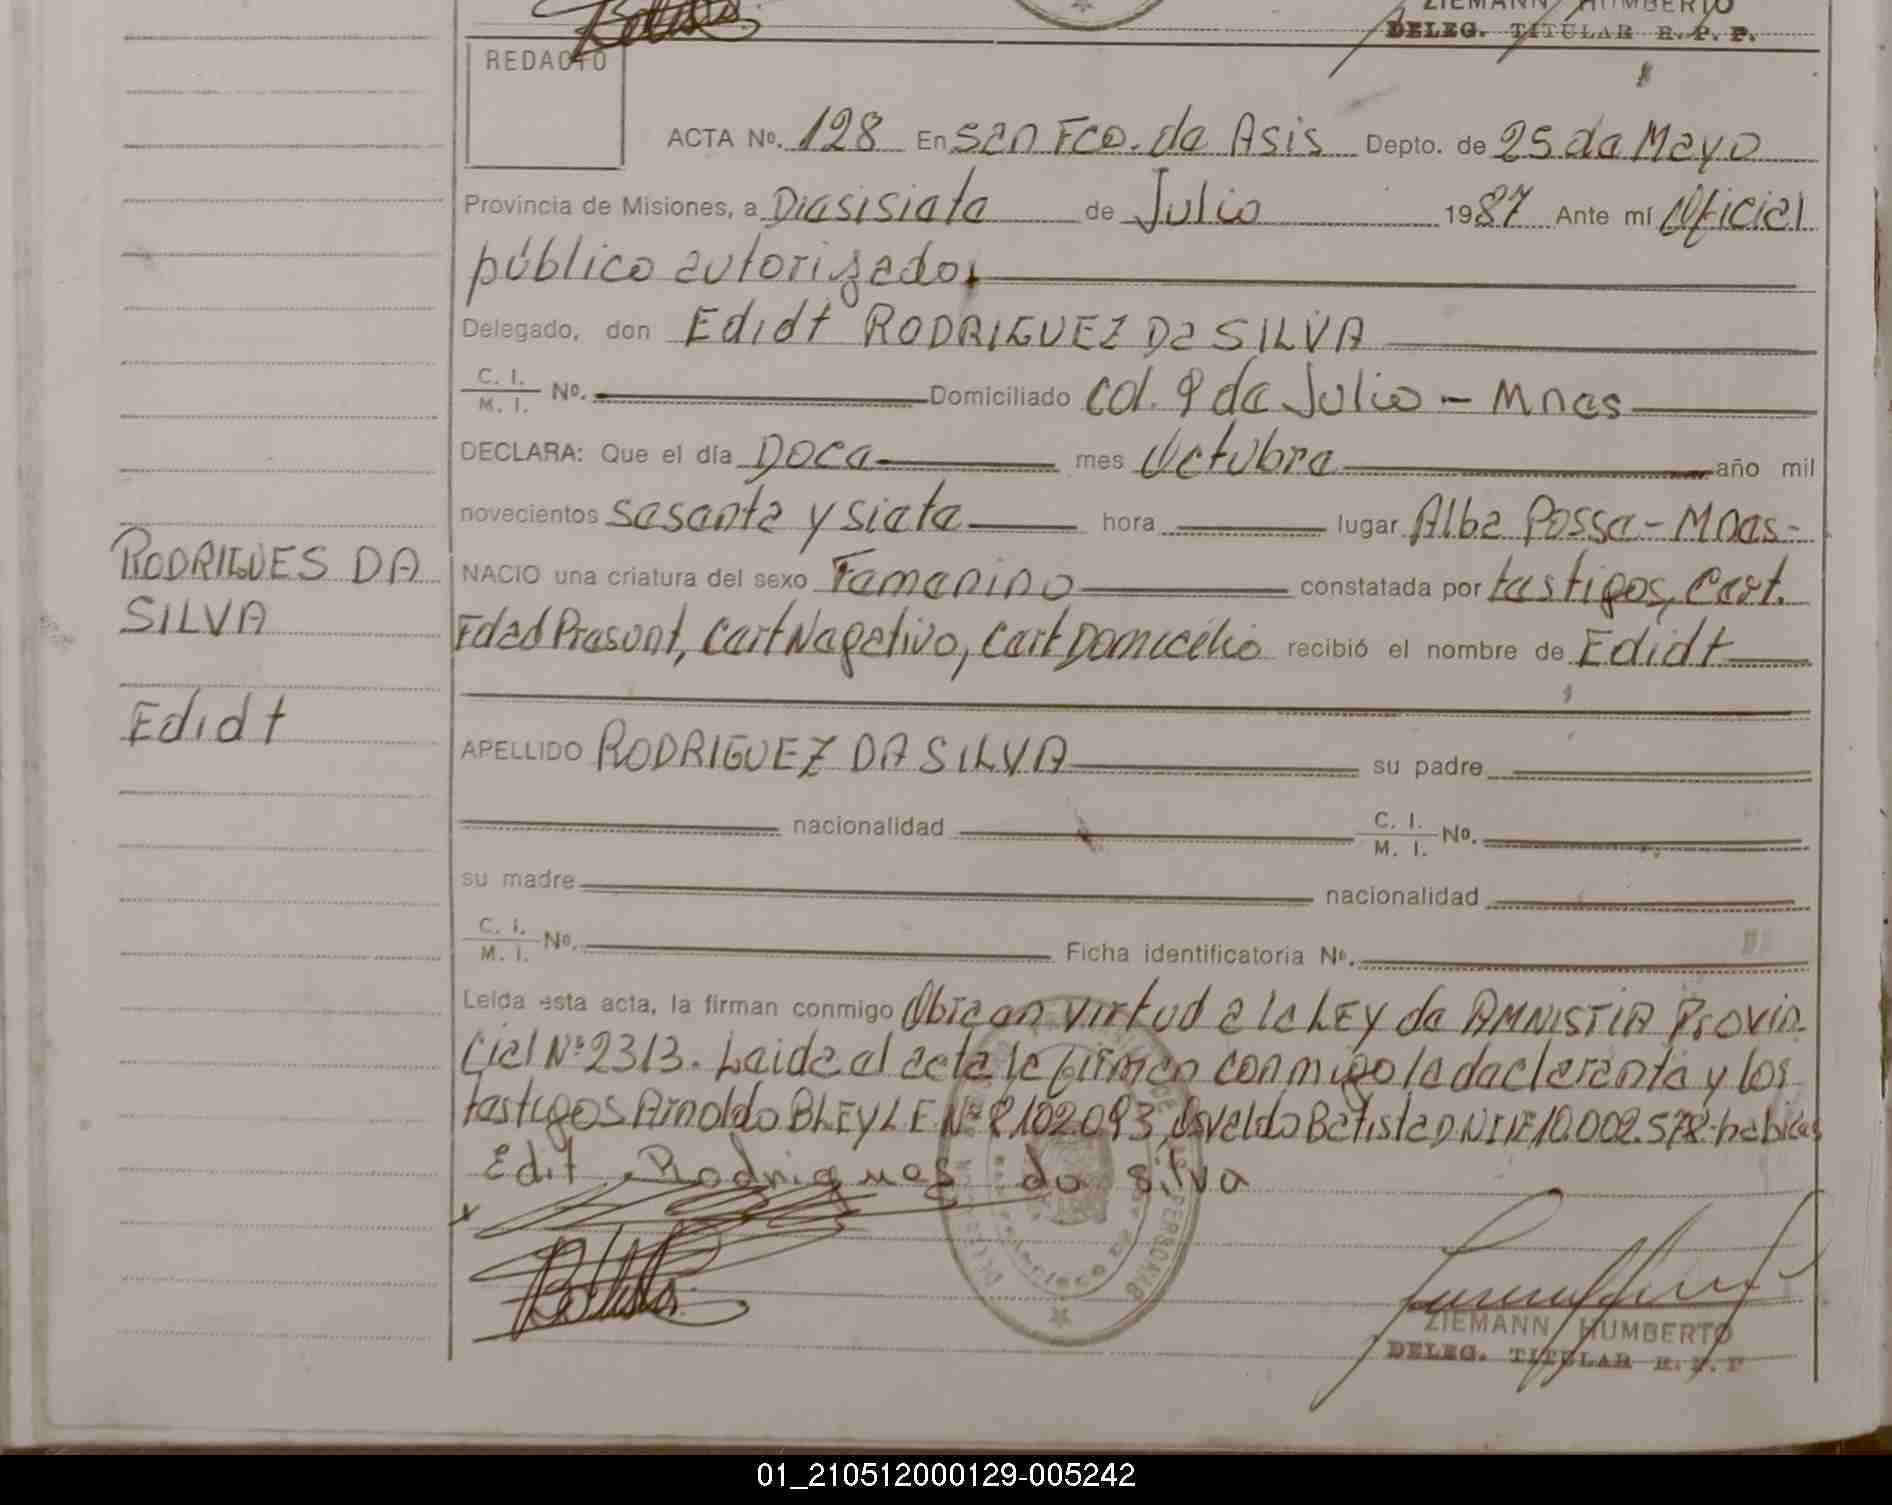 ZIEMANN HUMBERTO
DELEG. TITULAR R. P. P.
REDACTO
ACTA Nº. 128 En San Fco. de Asis Depto. de 25 de Mayo
Provincia de Misiones, a Diesisiete de Julio 1987 Ante mí Oficial
público autorizado,
Delegado, don Edidt RODRIGUEZ Da SILVA
C. I.
M. I. Nº. Domiciliado Col. 9 de Julio - Mnes
DECLARA: Que el día Doce mes Octubre año mil
novecientos sesenta y siete hora lugar Alba Posse - Mnes -
NACIO una criatura del sexo Femenino constatada por testigos, Cert.
Edad Presunt, Cert Negativo, Cert Domicilio recibió el nombre de Edidt
RODRIGUES DA
SILVA
Edidt
APELLIDO RODRIGUEZ DA SILVA su padre
nacionalidad C. I.
M. I. Nº.
su madre nacionalidad
C. I.
M. I. Nº. Ficha identificatoria Nº.
Leída esta acta, la firman conmigo Obra en virtud a la LEY de AMNISTIA Provin-
cial Nº 2313. Leida el acta la firman conmigo la declarante y los
testigos Arnoldo BLEYLE Nº 8102.093, Osvaldo Batista DNI Nº 10.002.578- habiles
Edit Rodrigues da silva
ZIEMANN HUMBERTO
DELEG. TITULAR R. P. P
01_210512000129-005242